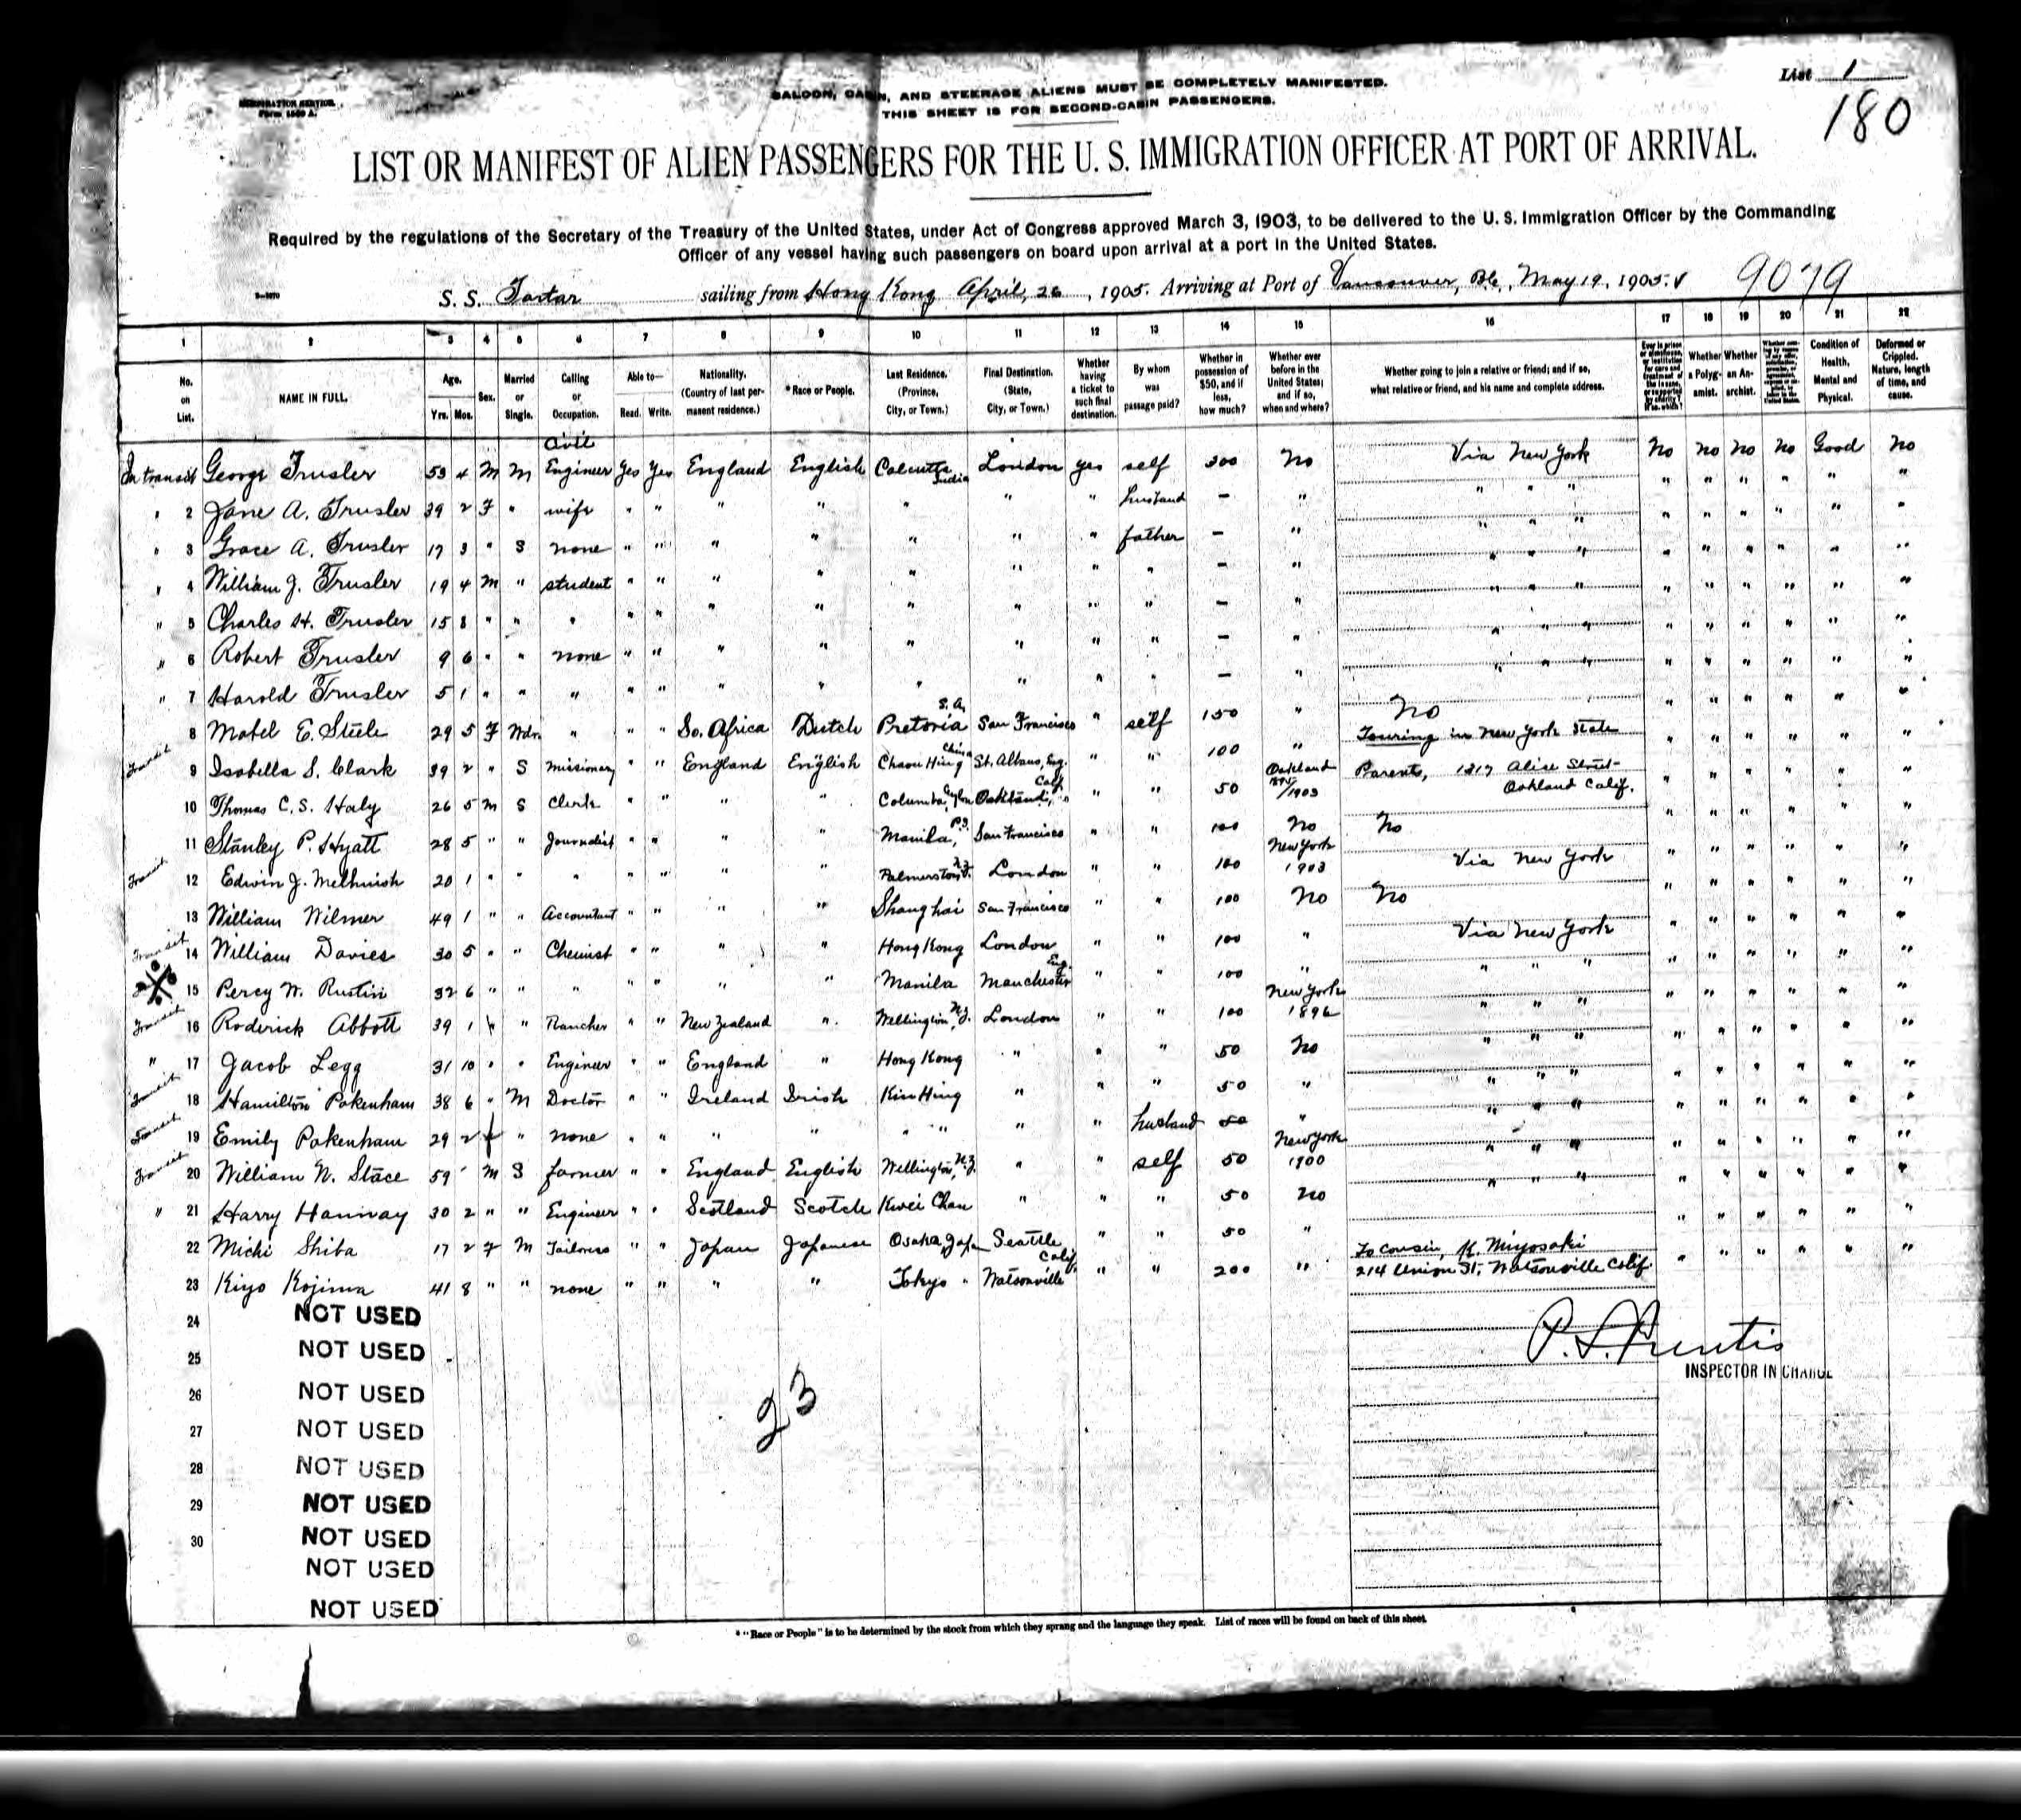 List 1
180
IMMIGRATION SERVICE
Form 1500 A.
SALOON, CABIN, AND STEERAGE ALIENS MUST BE COMPLETELY MANIFESTED.
THIS SHEET IS FOR SECOND-CABIN PASSENGERS.
LIST OR MANIFEST OF ALIEN PASSENGERS FOR THE U. S. IMMIGRATION OFFICER AT PORT OF ARRIVAL.
Required by the regulations of the Secretary of the Treasury of the United States, under Act of Congress approved March 3, 1903, to be delivered to the U. S. Immigration Officer by the Commanding
Officer of any vessel having such passengers on board upon arrival at a port in the United States.
S. S. Tartar sailing from Hong Kong April, 26, 1905. Arriving at Port of Vancouver, B.C., May 19, 1905. 9079
1 2 3 4 5 6 7 8 9 10 11 12 13 14 15 16 17 18 19 20 21 22
No. on List. NAME IN FULL. Age. Yrs. Mos. Sex. Married or Single. Calling or Occupation. Able to— Read. Write. Nationality. (Country of last permanent residence.) *Race or People. Last Residence. (Province, City, or Town.) Final Destination. (State, City, or Town.) Whether having a ticket to such final destination. By whom was passage paid? Whether in possession of $50, and if less, how much? Whether ever before in the United States; and if so, when and where? Whether going to join a relative or friend; and if so, what relative or friend, and his name and complete address. Whether a Polygamist. Whether an Anarchist. Condition of Health, Mental and Physical. Deformed or Crippled. Nature, length of time, and cause.
In transit George Trusler 53 4 M M Civil Engineer Yes Yes England English Calcutta India London yes self 300 No Via New York No No No No Good No
" 2 Jane A. Trusler 39 2 F " wife " " " " " " " husband – " " " " " " " " " "
" 3 Grace A. Trusler 17 3 " S none " " " " " " " father – " " " " " " " " " "
" 4 William J. Trusler 19 4 M " student " " " " " " " " – " " " " " " " " " "
" 5 Charles H. Trusler 15 8 " " " " " " " " " " " – " " " " " " " " " "
" 6 Robert Trusler 9 6 " " none " " " " " " " " – " " " " " " " " " "
" 7 Harold Trusler 5 1 " " " " " " " " " " " – " " " " " " " " " "
8 Mabel E. Steele 29 5 F Wdr. " " " So. Africa Dutch Pretoria S. A. San Francisco " self 150 " No " " " " " "
Transit 9 Isabella S. Clark 39 2 " S Missionary " " England English China St. Albans, Eng. " " 100 " Touring in New York State " " " " " "
10 Thomas C. S. Haly 26 5 M S Clerk " " " " Columba, Ceylon Oakland, Calf. " " 50 Oakland 1903 Parents, 1317 Alice Street Oakland Calif. " " " " " "
11 Stanley P. Hyatt 28 5 " " Journalist " " " " Manila, P.I. San Francisco " " 100 No No " " " " " "
Transit 12 Edwin J. Melhuish 20 1 " " " " " " " Palmerston, N.Z. London " " 100 New York 1903 Via New York " " " " " "
13 William Wilmer 49 1 " " Accountant " " " " Shanghai San Francisco " " 100 No No " " " " " "
Transit 14 William Davies 30 5 " " Chemist " " " " Hong Kong London " " 100 " Via New York " " " " " "
15 Percy W. Rustin 32 6 " " " " " " " Manila Manchester Eng. " " 100 " " " " " " " " " "
Transit 16 Roderick Abbott 39 1 " " Rancher " " New Zealand " Wellington, N.Z. London " " 100 New York 1896 " " " " " " " " "
" 17 Jacob Legg 31 10 " " Engineer " " England " Hong Kong " " " 50 No " " " " " " " " "
Transit 18 Hamilton Pakenham 38 6 " M Doctor " " Ireland Irish Kin Hing " " " 50 " " " " " " " " " "
Transit 19 Emily Pakenham 29 2 f " none " " " " " " " " husband 50 " " " " " " " " " "
Transit 20 William N. Stace 59 M S farmer " " England English Wellington, N.Z. " " self 50 New York 1900 " " " " " " " " "
" 21 Harry Hannay 30 2 " " Engineer " " Scotland Scotch Kwei Chau " " " 50 No " " " " " " " " "
22 Michi Shiba 17 2 F M Tailoress " " Japan Japanese Osaka, Japan Seattle " " 50 " " " " " " "
23 Kiyo Kojima 41 8 " " none " " " " Tokyo " Watsonville Calif. " " 200 " To cousin, K. Miyosaki 214 Union St, Watsonville Calif.
24 NOT USED
25 NOT USED
26 NOT USED
27 NOT USED
28 NOT USED
29 NOT USED
30 NOT USED
NOT USED
NOT USED
23
P. L. Prentis
INSPECTOR IN CHARGE
* "Race or People" is to be determined by the stock from which they sprang and the language they speak. List of races will be found on back of this sheet.